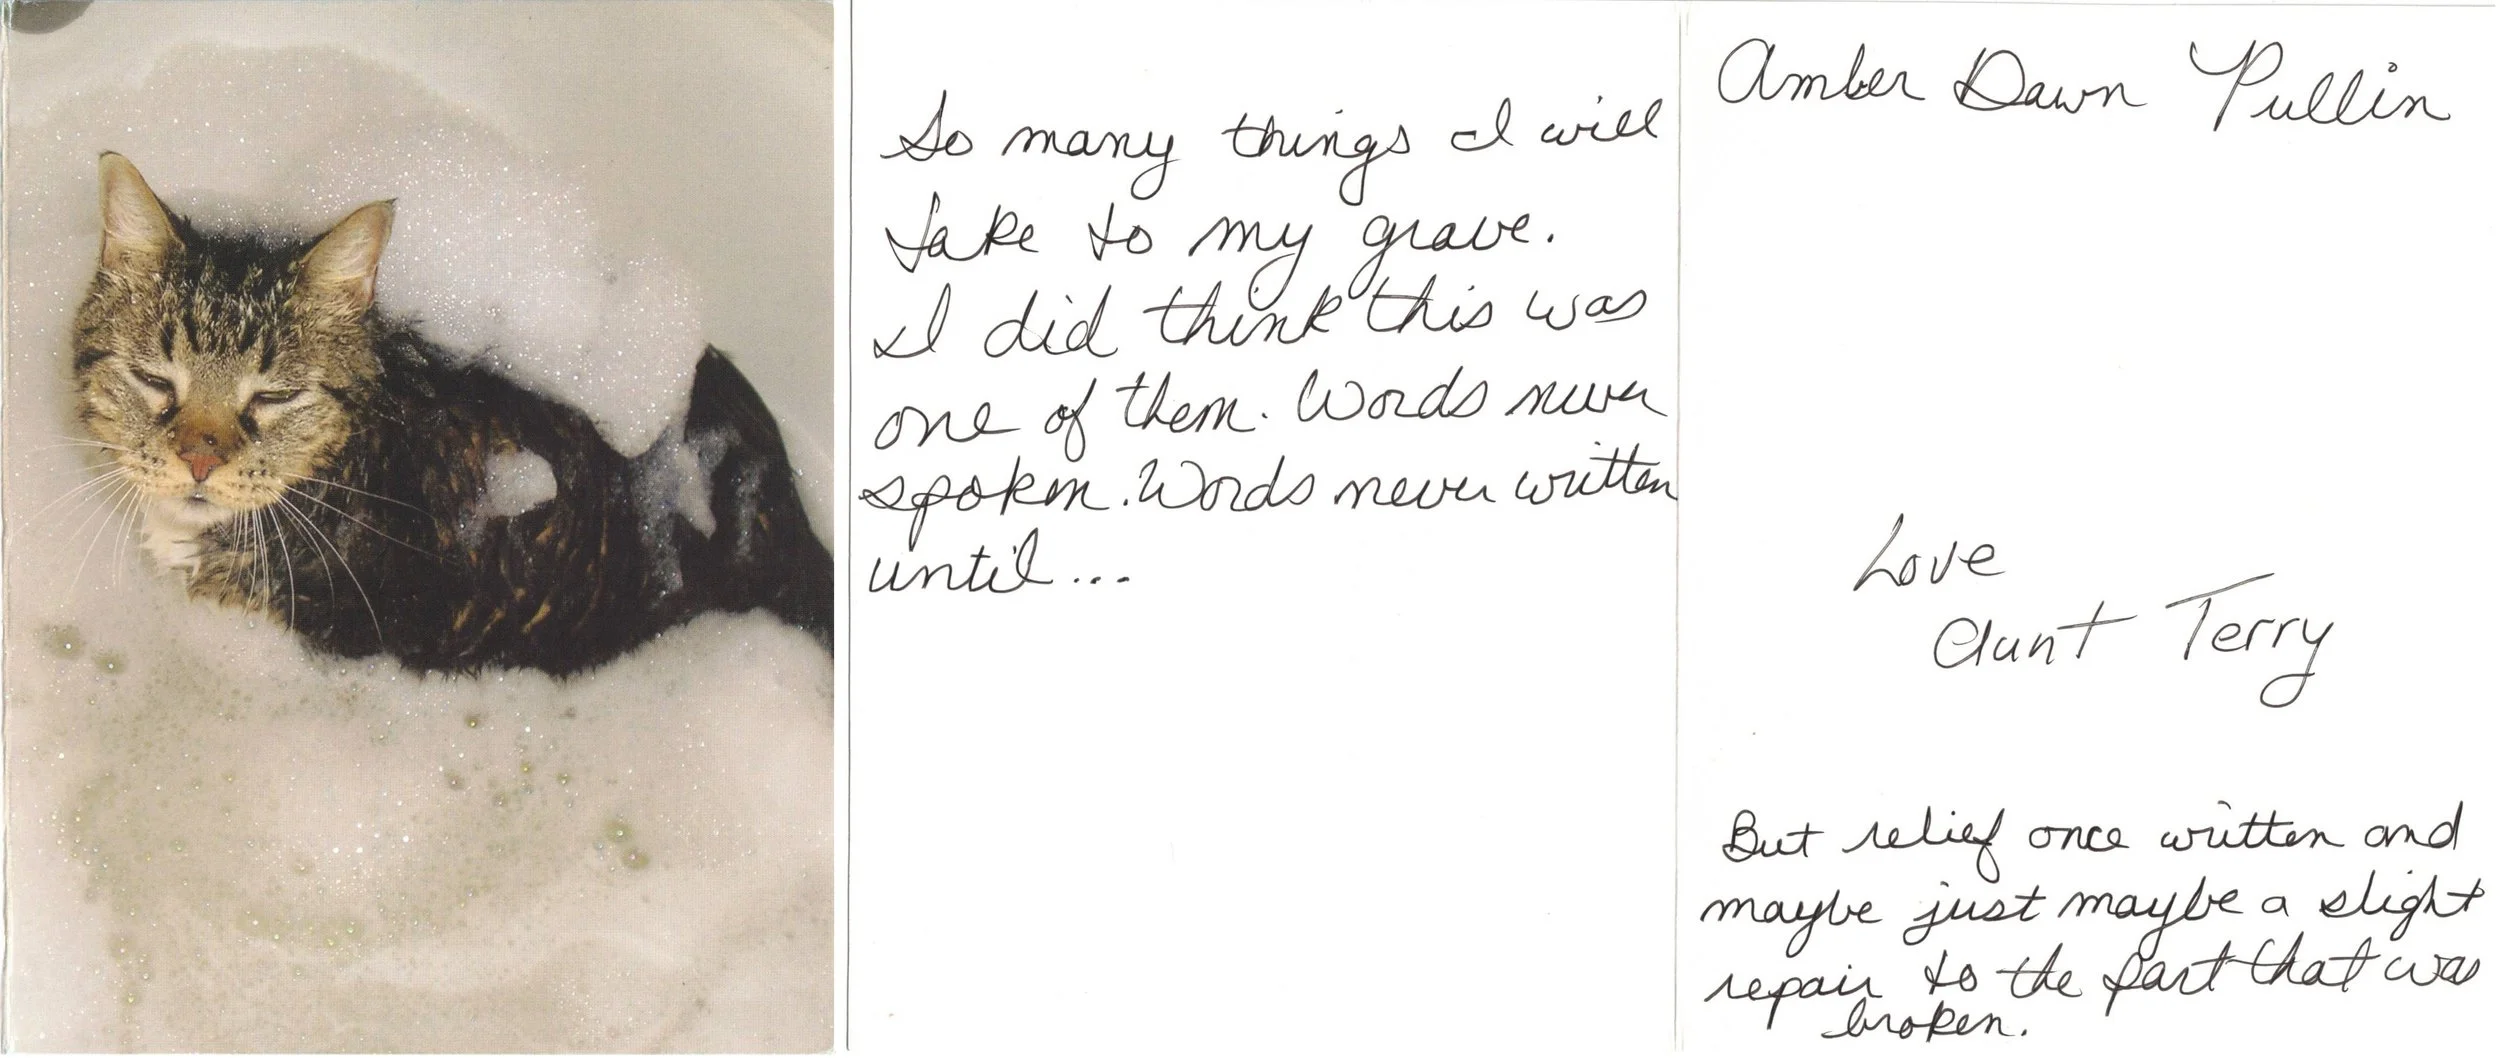 So many things I will
take to my grave.
I did think this was
one of them. Words never
spoken. Words never written
until...
Amber Dawn Pullin
Love
Aunt Terry
But relief once written and
maybe just maybe a slight
repair to the part that was
broken.